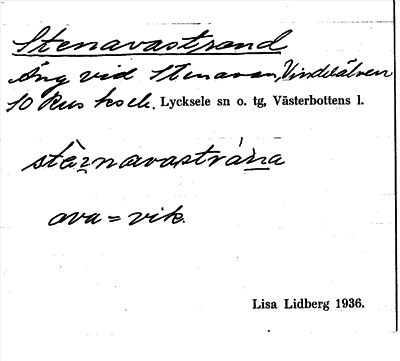 Stenavastrand
Äng vid Stenavan, Vindelälven
10 Rus ksck. Lycksele sn o. tg, Västerbottens l.
stèn̲avastrán̲a
ava = vik.
Lisa Lidberg 1936.